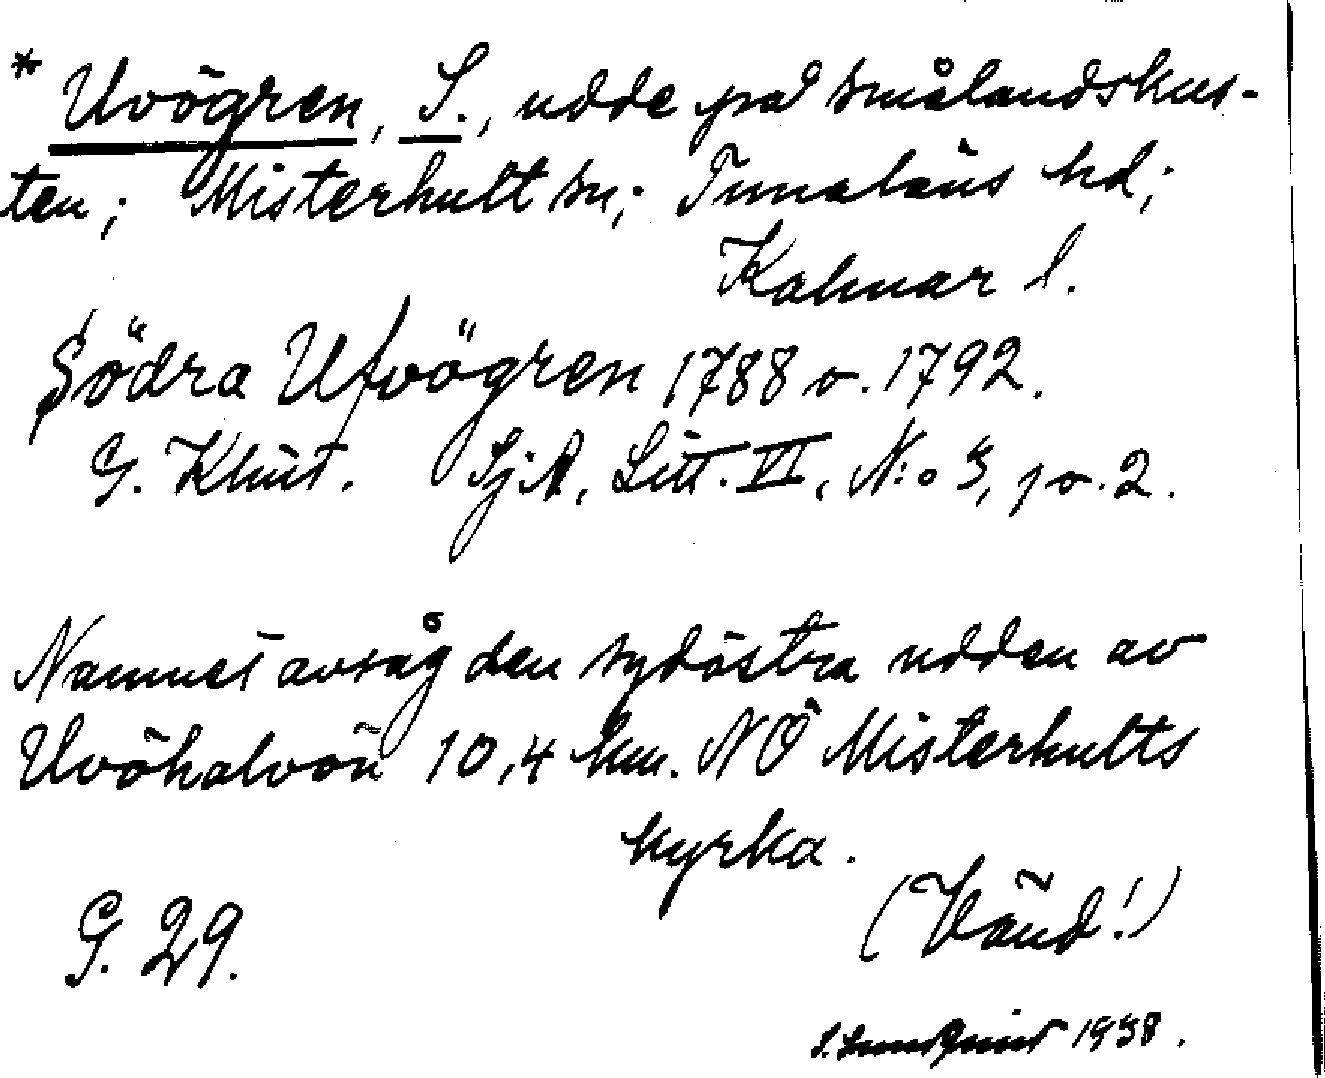 * Uvögren, S., udde på Smålandskus-
ten; Misterhult sn; Tunaläns hd;
Kalmar l.
Södra Ufvögren 1788 o. 1792.
G. Klint. SjA, Litt. VI, N:o 3, 1 o. 2.
Namnet avsåg den sydöstra udden av
Uvöhalvön 10,4 km. NÖ Misterhults
kyrka.
(Vänd!)
G. 29.
S. Lundquist 1938.